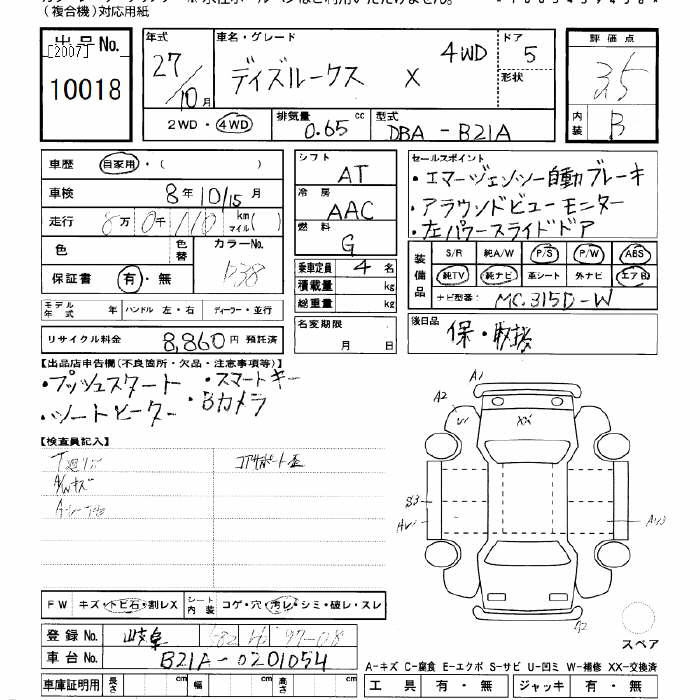 (複合機)対応用紙
出品No.
[2007]
10018
年式
27/10月
車名・グレード
ディズルークス X 4WD
ドア
5
形状
評価点
3.5
内装
B
2WD・4WD
排気量
0.65 cc
型式
DBA-B21A
車歴 自家用・( )
車検 8年10/15月
走行 8万0千110 km マイル( )
色
色替
カラーNo.
保証書 有・無
モデル年式 年 ハンドル 左・右 ディーラー・並行
リサイクル料金 8,860円 預託済
シフト
AT
冷房
AAC
燃料
G
乗車定員 4名
積載量 kg
総重量 kg
名変期限
月 日
セールスポイント
・エマージェンシー自動ブレーキ
・アラウンドビューモニター
・左パワースライドドア
装備品
S/R 純A/W P/S P/W ABS
純TV 純ナビ 革シート 外ナビ エアB
ナビ型番: MC.315D-W
後日品
保・取扱
【出品店申告欄(不良箇所・欠品・注意事項等)】
・プッシュスタート ・スマートキー
・シートヒーター ・Bカメラ
【検査員記入】
A1
A2
XX
S3
A2
FW キズ・トビ石・割レX シート内装 コゲ・穴・汚レ・シミ・破レ・スレ
登録No. 岐阜
車台No. B21A-0201054
車庫証明用 長さ cm 幅 cm 高さ cm
スペア
A-キズ C-腐食 E-エクボ S-サビ U-凹ミ W-補修 XX-交換済
工具 有・無 ジャッキ 有・無